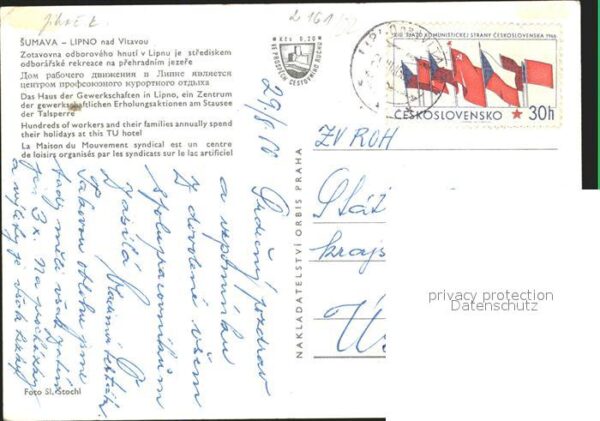 2161
ŠUMAVA – LIPNO nad Vltavou
Zotavovna odborového hnutí v Lipnu je střediskem
odborářské rekreace na přehradním jezeře
Дом рабочего движения в Липне является
центром профсоюзного курортного отдыха
Das Haus der Gewerkschaften in Lipno, ein Zentrum
der gewerkschaftlichen Erholungsaktionen am Stausee
der Talsperre
Hundreds of workers and their families annually spend
their holidays at this TU hotel
La Maison du Mouvement syndical est un centre
de loisirs organisés par les syndicats sur le lac artificiel
Kčs 0,20
VE PROSPĚCH CESTOVNÍHO RUCHU
XIII. SJEZD KOMUNISTICKÉ STRANY ČESKOSLOVENSKA 1966
ČESKOSLOVENSKO 30h
29/8 66
Srdečný pozdrav
a vzpomínku
z dovolené všem
spolupracovníkům
zasílá
Takovou oblohu jsme
tady měli
3x. Na procházky
a výlety je
NAKLADATELSTVÍ ORBIS PRAHA
ZV ROH
Stát
krajs
Ús
privacy protection
Datenschutz
Foto Sl. Štochl